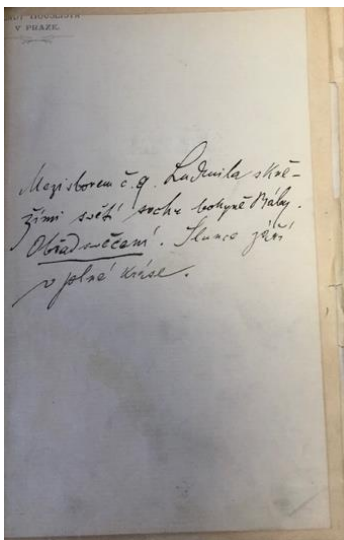 V PRAZE.
Mezisborem č. 9. Ludmila s kně-
žími světí sochu bohyně Báby.
Obřad svěcení. Slunce září
v plné kráse.